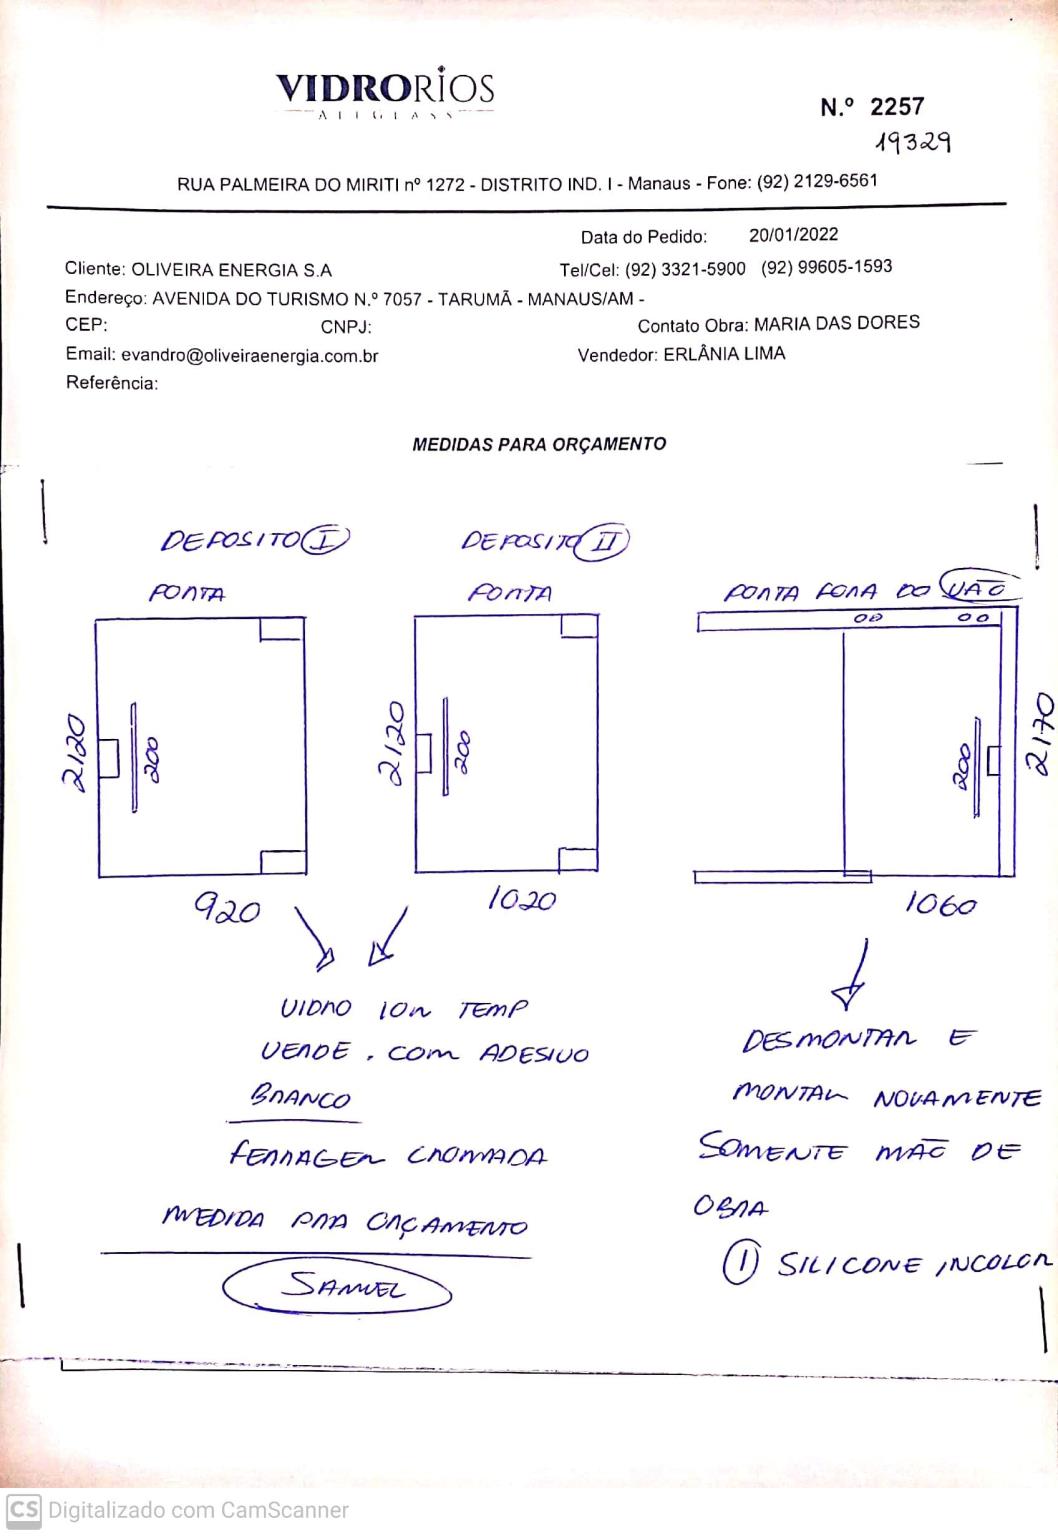 VIDRORIOS
ALLGLASS
N.º 2257
19329
RUA PALMEIRA DO MIRITI nº 1272 - DISTRITO IND. I - Manaus - Fone: (92) 2129-6561
Data do Pedido: 20/01/2022
Cliente: OLIVEIRA ENERGIA S.A Tel/Cel: (92) 3321-5900 (92) 99605-1593
Endereço: AVENIDA DO TURISMO N.º 7057 - TARUMÃ - MANAUS/AM -
CEP: CNPJ: Contato Obra: MARIA DAS DORES
Email: evandro@oliveiraenergia.com.br Vendedor: ERLÂNIA LIMA
Referência:
MEDIDAS PARA ORÇAMENTO
DEPOSITO I DEPOSITO II
PORTA PORTA PORTA FORA DO VÃO
2120 200 2120 200 200 2170
920 1020 1060
VIDRO 10m TEMP
VERDE . COM ADESIVO
BRANCO
FERRAGEM CROMADA
MEDIDA PRA ORÇAMENTO
SAMUEL
DESMONTAR E
MONTAR NOVAMENTE
SOMENTE MÃO DE
OBRA
1 SILICONE INCOLOR
CS Digitalizado com CamScanner